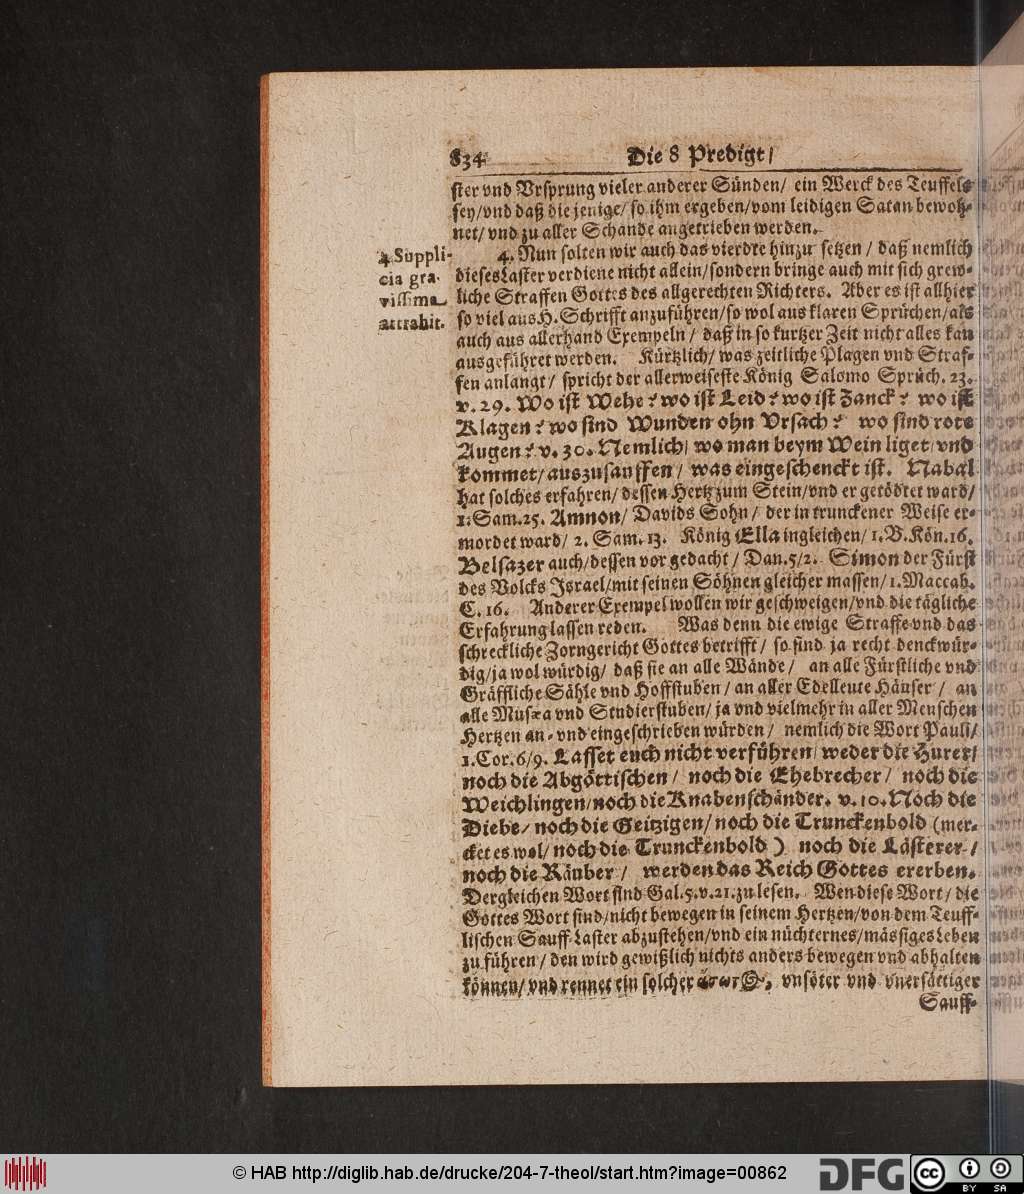 834 Die 8 Predigt/
ster vnd Vrsprung vieler anderer Sünden/ ein Werck des Teuffels
sey/vnd daß die jenige/ so ihm ergeben/vom leidigen Satan bewoh-
net/ vnd zu aller Schande angetrieben werden.
4. Suppli-
cia gra-
vissima
attrahit.
4. Nun solten wir auch das vierdte hinzu setzen/ daß nemlich
dieses Laster verdiene nicht allein/sondern bringe auch mit sich grew-
liche Straffen Gottes des allgerechten Richters. Aber es ist allhier
so viel aus H. Schrifft anzuführen/so wol aus klaren Sprüchen/als
auch aus allerhand Exempeln/ daß in so kurtzer Zeit nicht alles kan
ausgeführet werden. Kürtzlich/ was zeitliche Plagen vnd Straf-
fen anlangt/ spricht der allerweiseste König Salomo Sprüch. 23.
v. 29. Wo ist Wehe? wo ist Leid? wo ist Zanck? wo ist
Klagen? wo sind Wunden ohn Vrsach? wo sind rote
Augen? v. 30. Nemlich/ wo man beym Wein liget/ vnd
kommet/ auszusauffen/ was eingeschenckt ist. Nabal
hat solches erfahren/ dessen Hertz zum Stein/vnd er getödtet ward/
1. Sam. 25. Amnon/ Davids Sohn/ der in trunckener Weise er-
mordet ward/ 2. Sam. 13. König Ella ingleichen/ 1. B. Kön. 16.
Belsazer auch/dessen vor gedacht/ Dan. 5/2. Simon der Fürst
des Volcks Israel/mit seinen Söhnen gleicher massen/ 1. Maccab.
C. 16. Anderer Exempel wollen wir geschweigen/vnd die tägliche
Erfahrung lassen reden. Was denn die ewige Straffe vnd das
schreckliche Zorngericht Gottes betrifft/ so sind ja recht denckwür-
dig/ja wol würdig/ daß sie an alle Wände/ an alle Fürstliche vnd
Gräffliche Sähle vnd Hoffstuben/ an aller Edelleute Häuser/ an
alle Musæa vnd Studierstuben/ ja vnd vielmehr in aller Menschen
Hertzen an- vnd eingeschrieben würden/ nemlich die Wort Pauli/
1. Cor. 6/9. Lasset euch nicht verführen/ weder die Hurer/
noch die Abgöttischen/ noch die Ehebrecher/ noch die
Weichlingen/noch die Knabenschänder. v. 10. Noch die
Diebe/ noch die Geitzigen/ noch die Trunckenbold (mer-
cket es wol/ noch die Trunckenbold) noch die Lästerer/
noch die Räuber/ werden das Reich Gottes ererben.
Dergleichen Wort sind Gal. 5. v. 21. zu lesen. Wen diese Wort/ die
Gottes Wort sind/nicht bewegen in seinem Hertzen/von dem Teuff-
lischen Sauff-Laster abzustehen/vnd ein nüchternes/mässiges Leben
zu führen/ den wird gewißlich nichts anders bewegen vnd abhalten
können/ vnd rennet ein solcher vnsöter vnd vnersättiger
Sauff-
© HAB http://diglib.hab.de/drucke/204-7-theol/start.htm?image=00862
DFG
cc BY SA